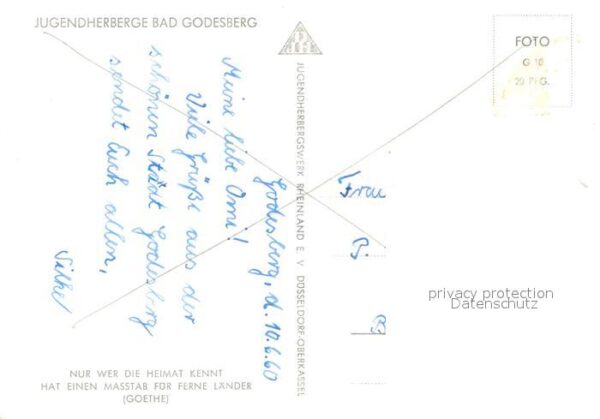 JUGENDHERBERGE BAD GODESBERG
Godesberg, d. 10.6.60
Meine liebe Omi!
Viele Grüße aus der
schönen Stadt Godesberg
sendet Euch allen,
Silke
NUR WER DIE HEIMAT KENNT
HAT EINEN MASSTAB FÜR FERNE LÄNDER
(GOETHE)
JUGENDHERBERGSWERK RHEINLAND E. V. DÜSSELDORF-OBERKASSEL
FOTO
G 10
20 PFG.
Frau
B.
B
privacy protection
Datenschutz